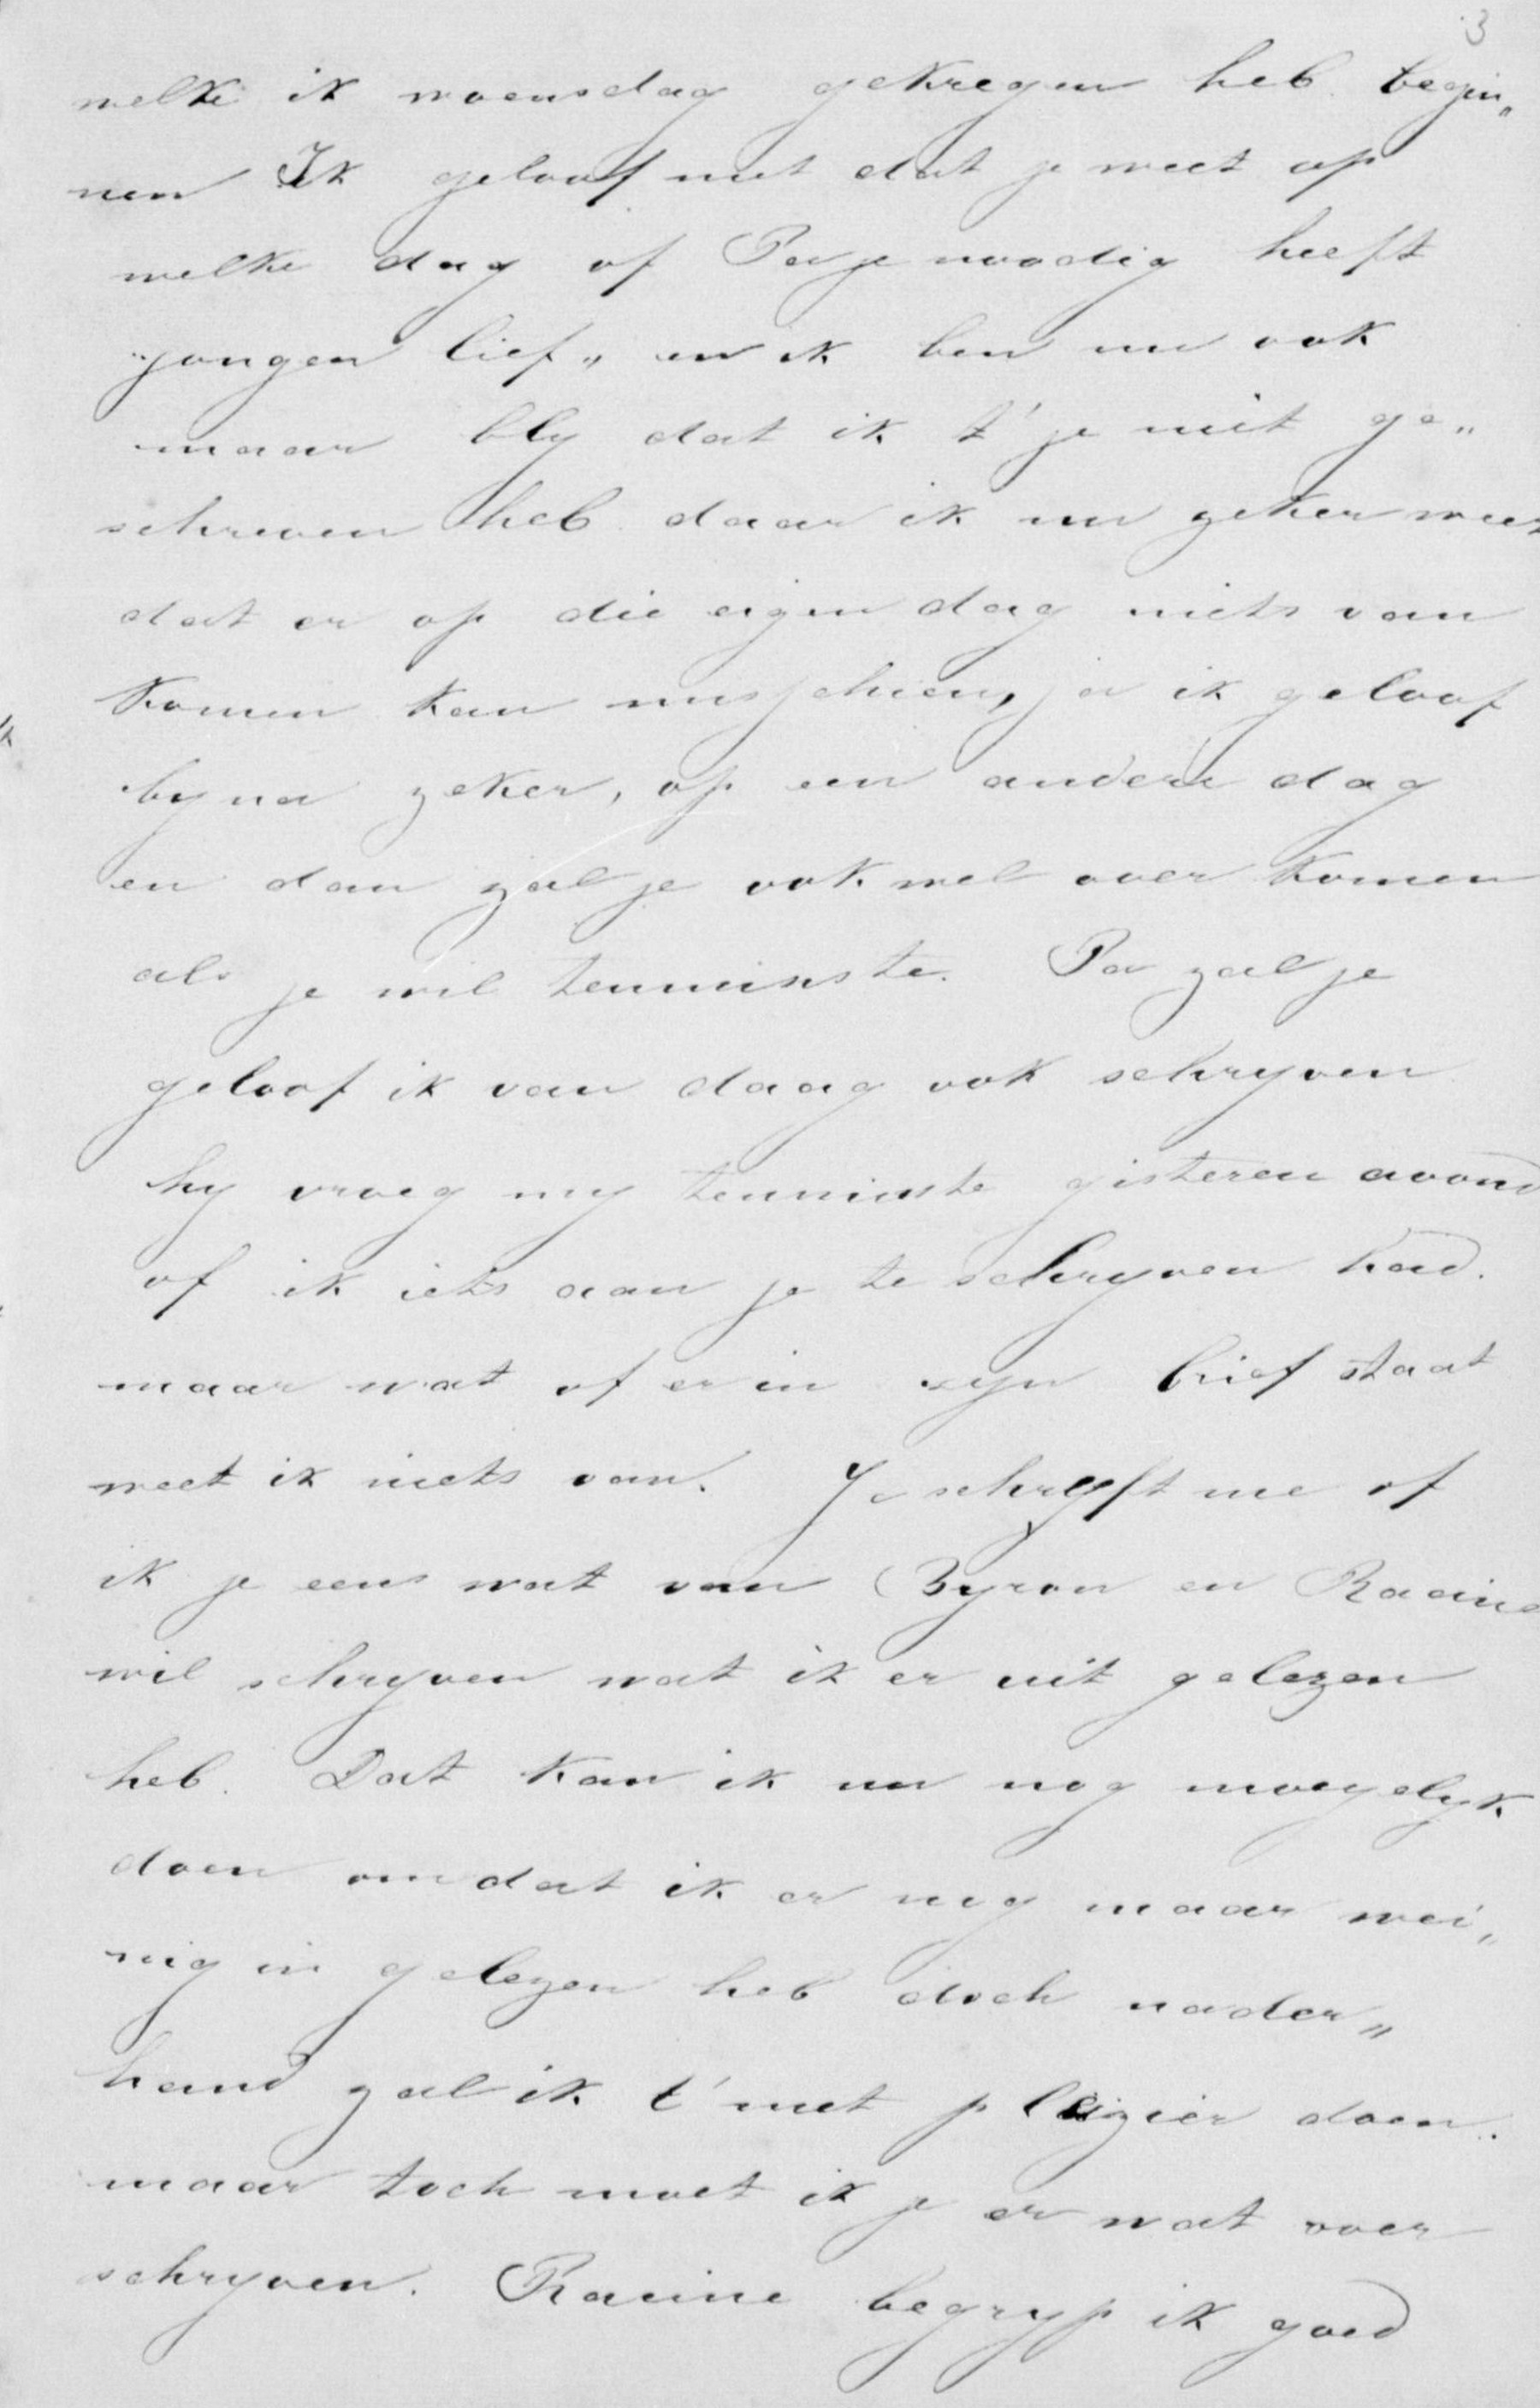 3
welke ik woensdag gekregen heb begin„
nen Ik geloof niet dat je weet op
welke dag of Pa je noodig heeft
„jongen lief„ en ik ben nu ook
maar bly dat ik t' je niet ge„
schreven heb daar ik nu zeker weet
dat er op die eigen dag niets van
komen kan misschien, ja ik geloof
byna zeker, op een andere dag
en dan zal je ook wel over komen
als je wil tenminste. Pa zal je
geloof ik van daag ook schryven
hy vroeg my tenminste gisteren avond
of ik iets aan je te schryven had.
maar wat of er in zyn brief staat
weet ik niets van. Je schryft me of
ik je eens wat van Byron en Racine
wil schryven wat ik er uit gelezen
heb. Dat kan ik nu nog moeyelyk
doen omdat ik er nog maar wei„
nig in gelezen heb doch nader„
hand zal ik t' met pleizier doen.
maar toch moet ik je er wat over
schryven. Racine begryp ik goed